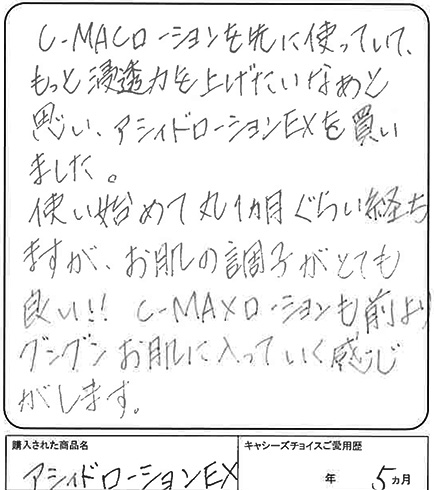 C-MACローションを先に使っていて、
もっと浸透力を上げたいなぁと
思い、アシィドローションEXを買い
ました。
使い始めて丸1カ月ぐらい経ち
ますが、お肌の調子がとても
良い!! C-MAXローションも前より
グングンお肌に入っていく感じ
がします。
購入された商品名
キャシーズチョイスご愛用歴
アシィドローションEX
年 5ヵ月